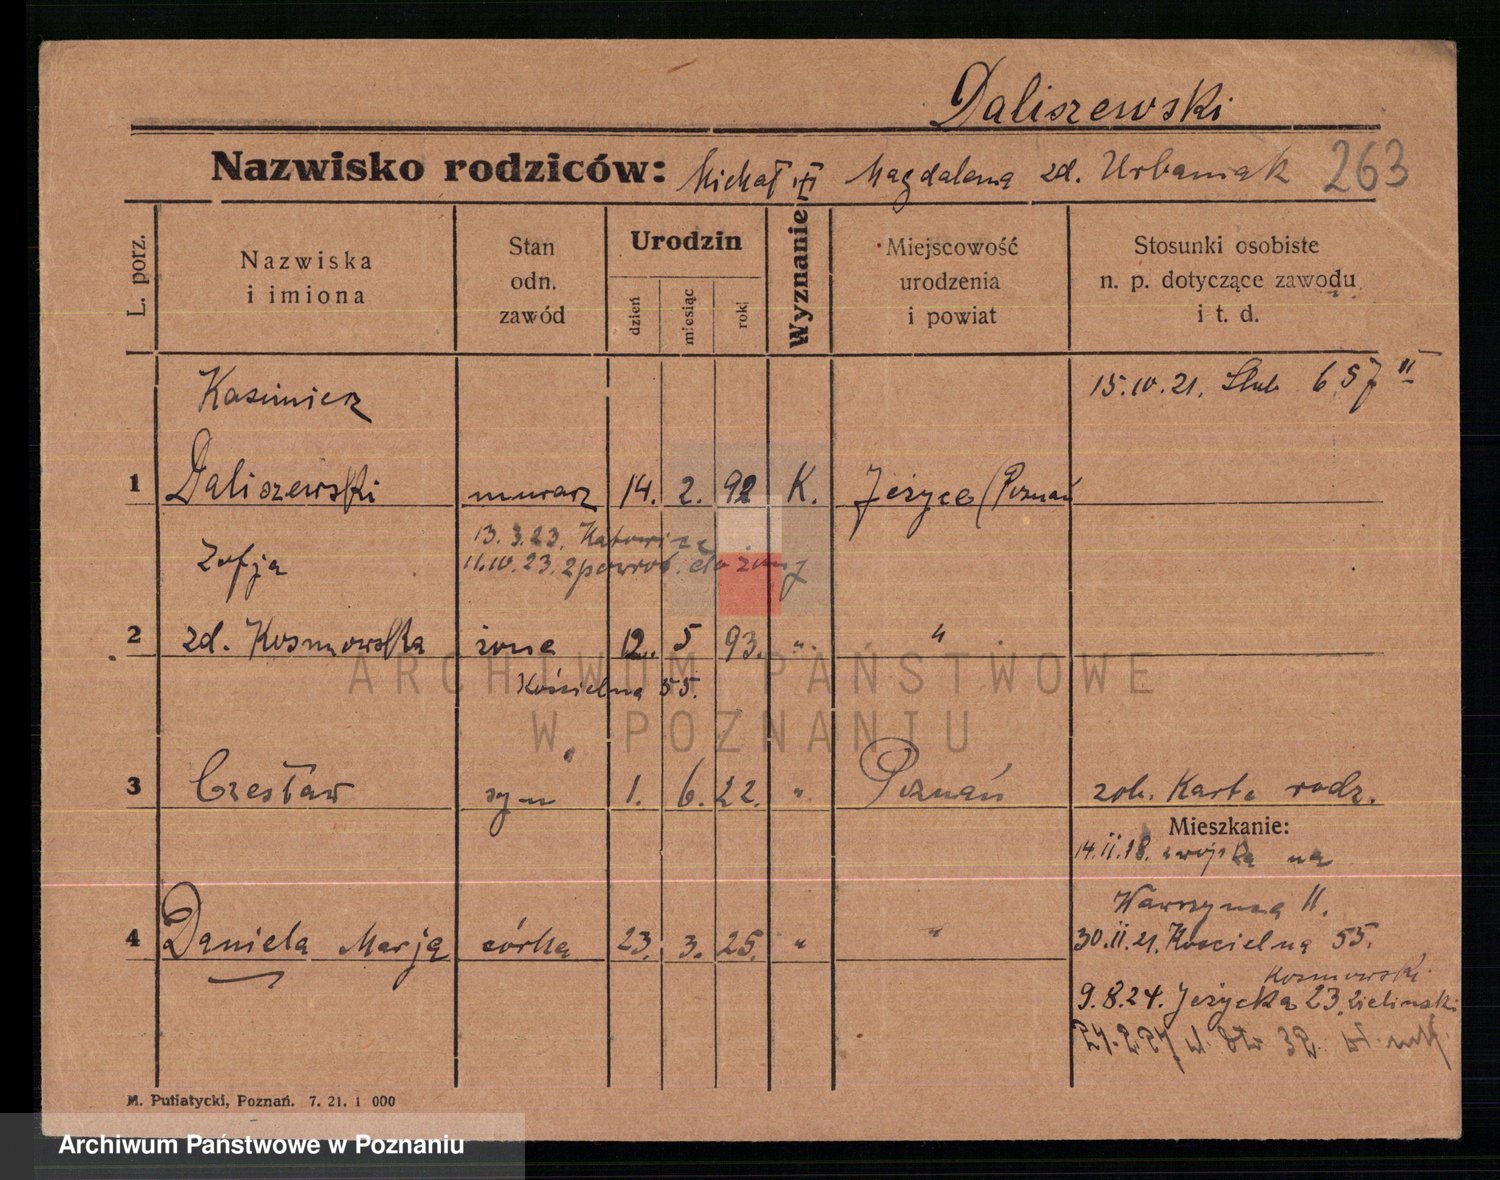 Daliszewski
Nazwisko rodziców: Michał Magdalena zd. Urbaniak 263
L. porz.
Nazwiska i imiona
Stan odn. zawód
Urodzin
dzień
miesiąc
rok
Wyznanie
Miejscowość urodzenia i powiat
Stosunki osobiste n. p. dotyczące zawodu i t. d.
Kasimierz
15.10.21. Ślub
1 Daliszewski murarz 14. 2. 92 K. Jeżyce (Poznań
13.3.23. Katowice
Zofja
11.10.23. z powrot. do żony
2 zd. Kosmowska żona 12. 5 93. " "
Kościelna 55.
3 Czesław syn 1. 6. 22. " Poznań zob. Karta rodz.
Mieszkanie:
14.II.18. z wojska na
Warszyna 11.
4 Daniela Marja córka 23. 3. 25. " " 30.II.21. Kościelna 55.
Kosmowski
9.8.24. Jeżycka 23. Zielinski
M. Putiatycki, Poznań. 7. 21. 1 000
ARCHIWUM PAŃSTWOWE
W POZNANIU
Archiwum Państwowe w Poznaniu